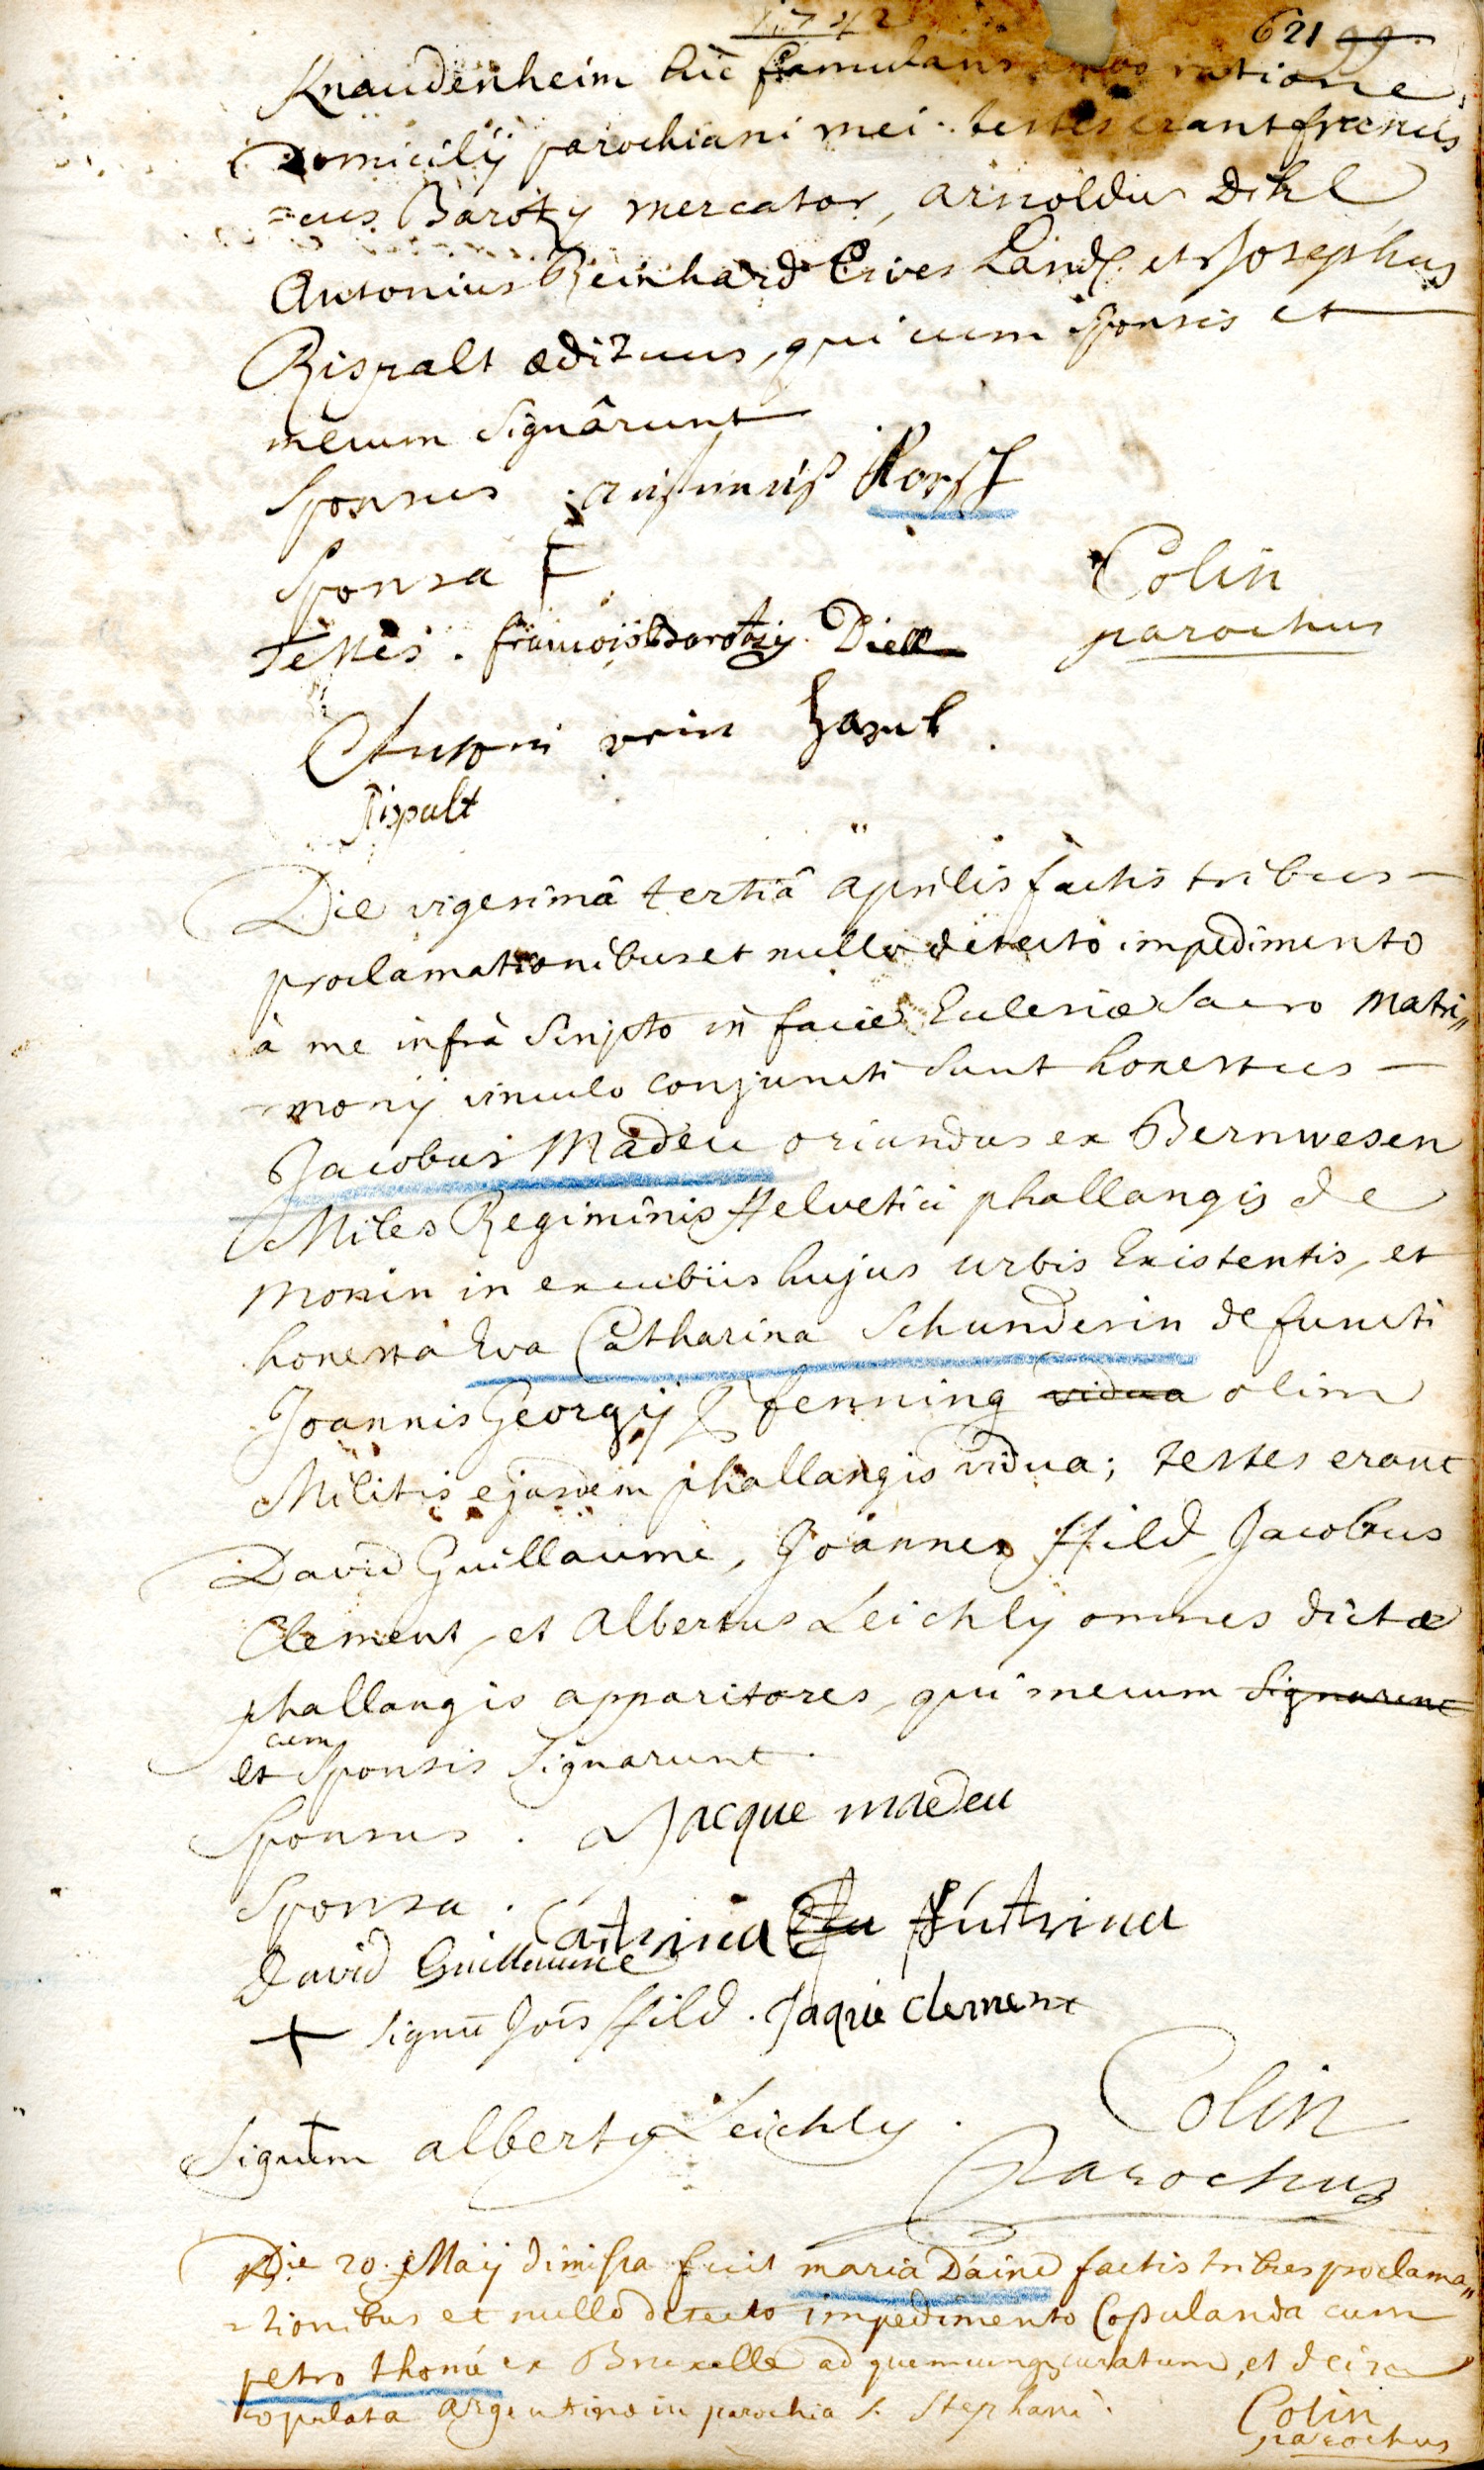 1742
621
Knaudenheim hic famulans ambo ratione
Domicilij parochiani mei. testes erant francis
=cus Barotzy mercator, arnoldus Dihl
Antonius Reinhard Cives Land. et Josephus
Rispalt ædituus, qui cum sponsis et
mecum signârunt
Sponsus Horst
Sponsa
Testes. francois Barotzy Diell
Colin
parochus
Antoni rein hart
Rispalt
Die vigesimâ tertiâ aprilis factis tribus
proclamationibus et nullo detecto impedimento
à me infrà scripto in facie Ecclesiæ sacro matri„
monij vinculo conjuncti sunt honestus
Jacobus Madeu oriundus ex Bernwesen
Miles Regiminis Helvetici phallangis de
Monin in excubiis hujus urbis Existentis, et
honesta Eva Catharina Schunderin defuncti
Joannis Georgij Pfenning vidua olim
Militis ejusdem phallangis vidua; testes erant
David Guillaume, Joannes Hild, Jacobus
Clement, et Albertus Leichly omnes dictæ
phallangis apparitores, qui mecum signarunt
et cum Sponsis signarunt.
Sponsus. Jacque madeu
Sponsa. Catrina
David Guillaume
+ Signũ Jois Hild. Jaque Clement
Signum alberty Leichly.
Colin
Parochus
Die 20. Maij dimissa fuit maria Daine factis tribus proclama„
=tionibus et nullo detecto impedimento Copulanda cum
petro thoné ex Bruxelle ad quemcunq; curatum, et
copulata argentinæ in parochia S. Stephani.
Colin
parochus